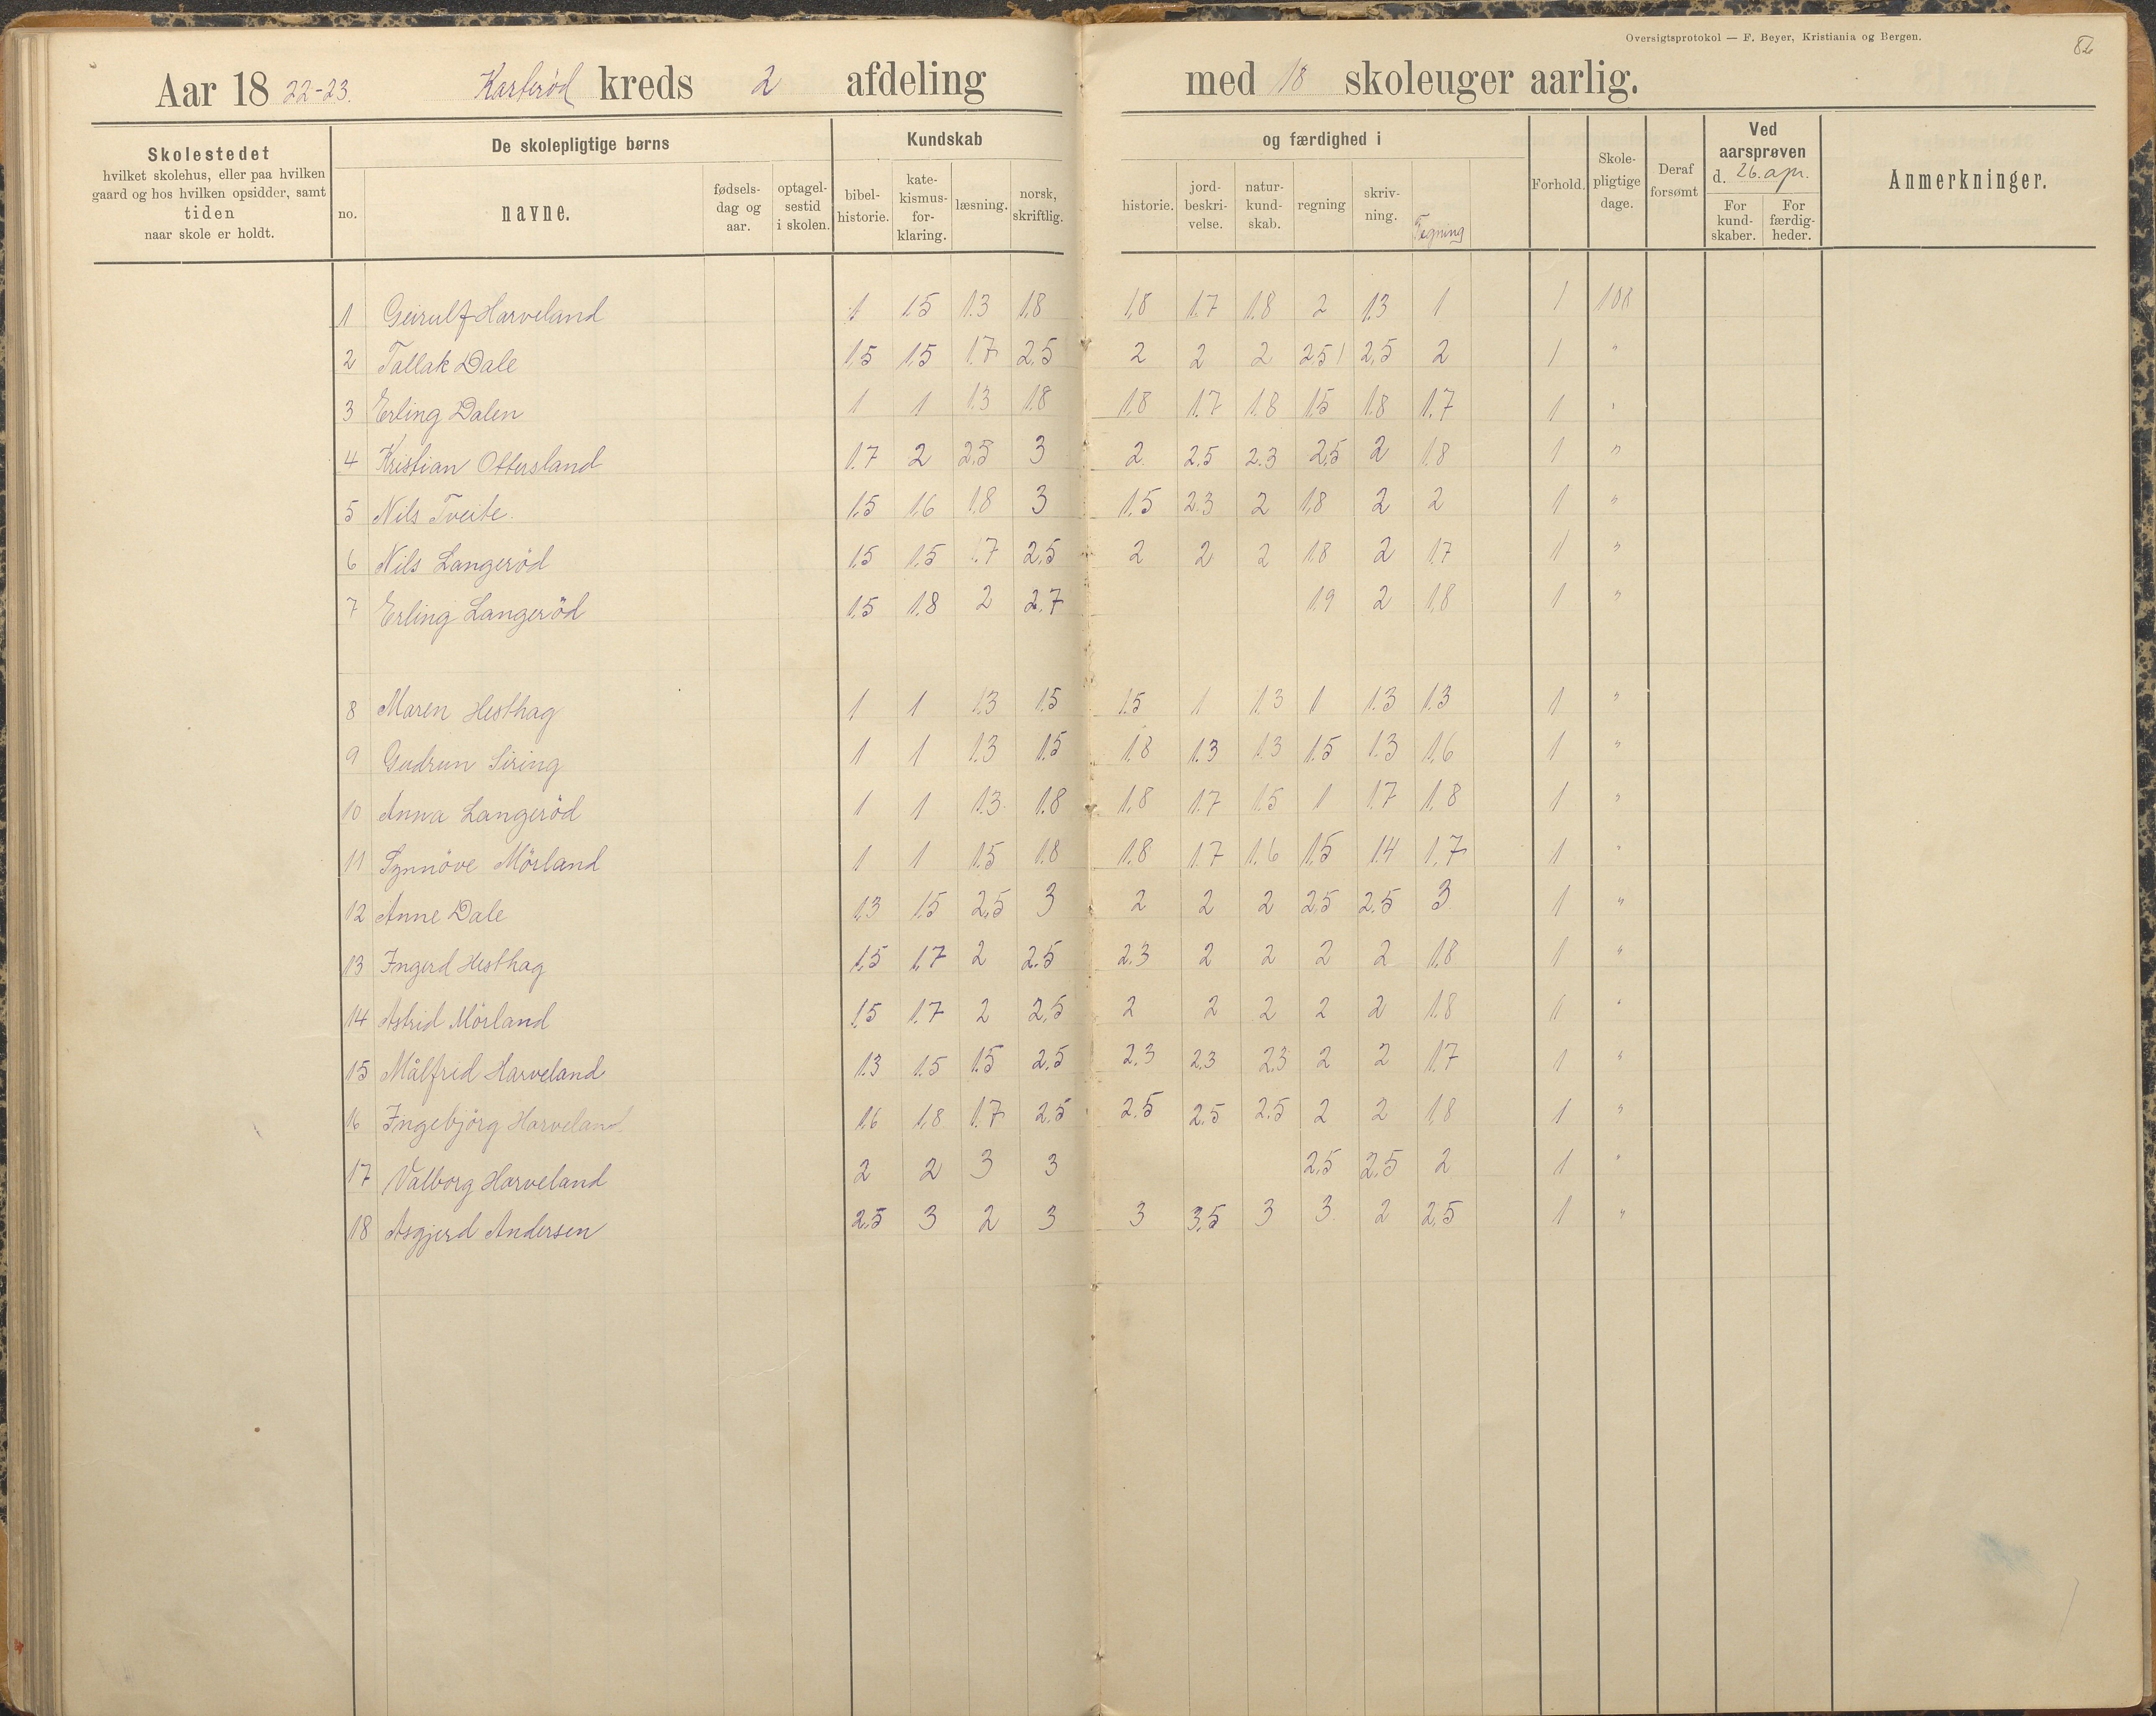 Oversigtsprotokol — F. Beyer, Kristiania og Bergen.
82
Aar 18 22-23. Karlsröd kreds 2 afdeling med 18 skoleuger aarlig.
Skolestedet
hvilket skolehus, eller paa hvilken
gaard og hos hvilken opsidder, samt
tiden
naar skole er holdt.
De skolepligtige børns
no.
navne.
fødsels-
dag og
aar.
optagel-
sestid
i skolen.
Kundskab og færdighed i
bibel-
historie.
kate-
kismus-
for-
klaring.
læsning.
norsk,
skriftlig.
historie.
jord-
beskri-
velse.
natur-
kund-
skab.
regning
skriv-
ning.
Tegning
Forhold.
Skole-
pligtige
dage.
Deraf
forsømt
Ved
aarsprøven
d. 26. apr.
For
kund-
skaber.
For
færdig-
heder.
Anmerkninger.
1 Geirulf Harveland 1 1.5 1.3 1.8 1.8 1.7 1.8 2 1.3 1 1 108
2 Tallak Dale 1.5 1.5 1.7 2.5 2 2 2 2.5 2.5 2 1 "
3 Erling Dalen 1 1 1.3 1.8 1.8 1.7 1.8 1.5 1.8 1.7 1 "
4 Kristian Ottersland 1.7 2 2.5 3 2 2.5 2.3 2.5 2 1.8 1 "
5 Nils Tveite. 1.5 1.6 1.8 3 1.5 2.3 2 1.8 2 2 1 "
6 Nils Langeröd 1.5 1.5 1.7 2.5 2 2 2 1.8 2 1.7 1 "
7 Erling Langeröd 1.5 1.8 2 2.7 1.9 2 1.8 1 "
8 Maren Hesthag 1 1 1.3 1.5 1.5 1 1.3 1 1.3 1.3 1 "
9 Gudrun Siring 1 1 1.3 1.5 1.8 1.3 1.3 1.5 1.3 1.6 1 "
10 Anna Langeröd 1 1 1.3 1.8 1.8 1.7 1.5 1 1.7 1.8 1 "
11 Synnöve Mörland 1 1 1.5 1.8 1.8 1.7 1.6 1.5 1.4 1.7 1 "
12 Anne Dale 1.3 1.5 2.5 3 2 2 2 2.5 2.5 3 1 "
13 Ingerd Hesthag 1.5 1.7 2 2.5 2.3 2 2 2 2 1.8 1 "
14 Astrid Mörland 1.5 1.7 2 2.5 2 2 2 2 2 1.8 1 "
15 Målfrid Harveland 1.3 1.5 1.5 2.5 2.3 2.3 2.3 2 2 1.7 1 "
16 Ingebjörg Harveland. 1.6 1.8 1.7 2.5 2.5 2.5 2.5 2 2 1.8 1 "
17 Valborg Harveland 2 2 3 3 2.5 2.5 2 1 "
18 Asgjerd Andersen 2.5 3 2 3 3 3.5 3 3 2 2.5 1 "